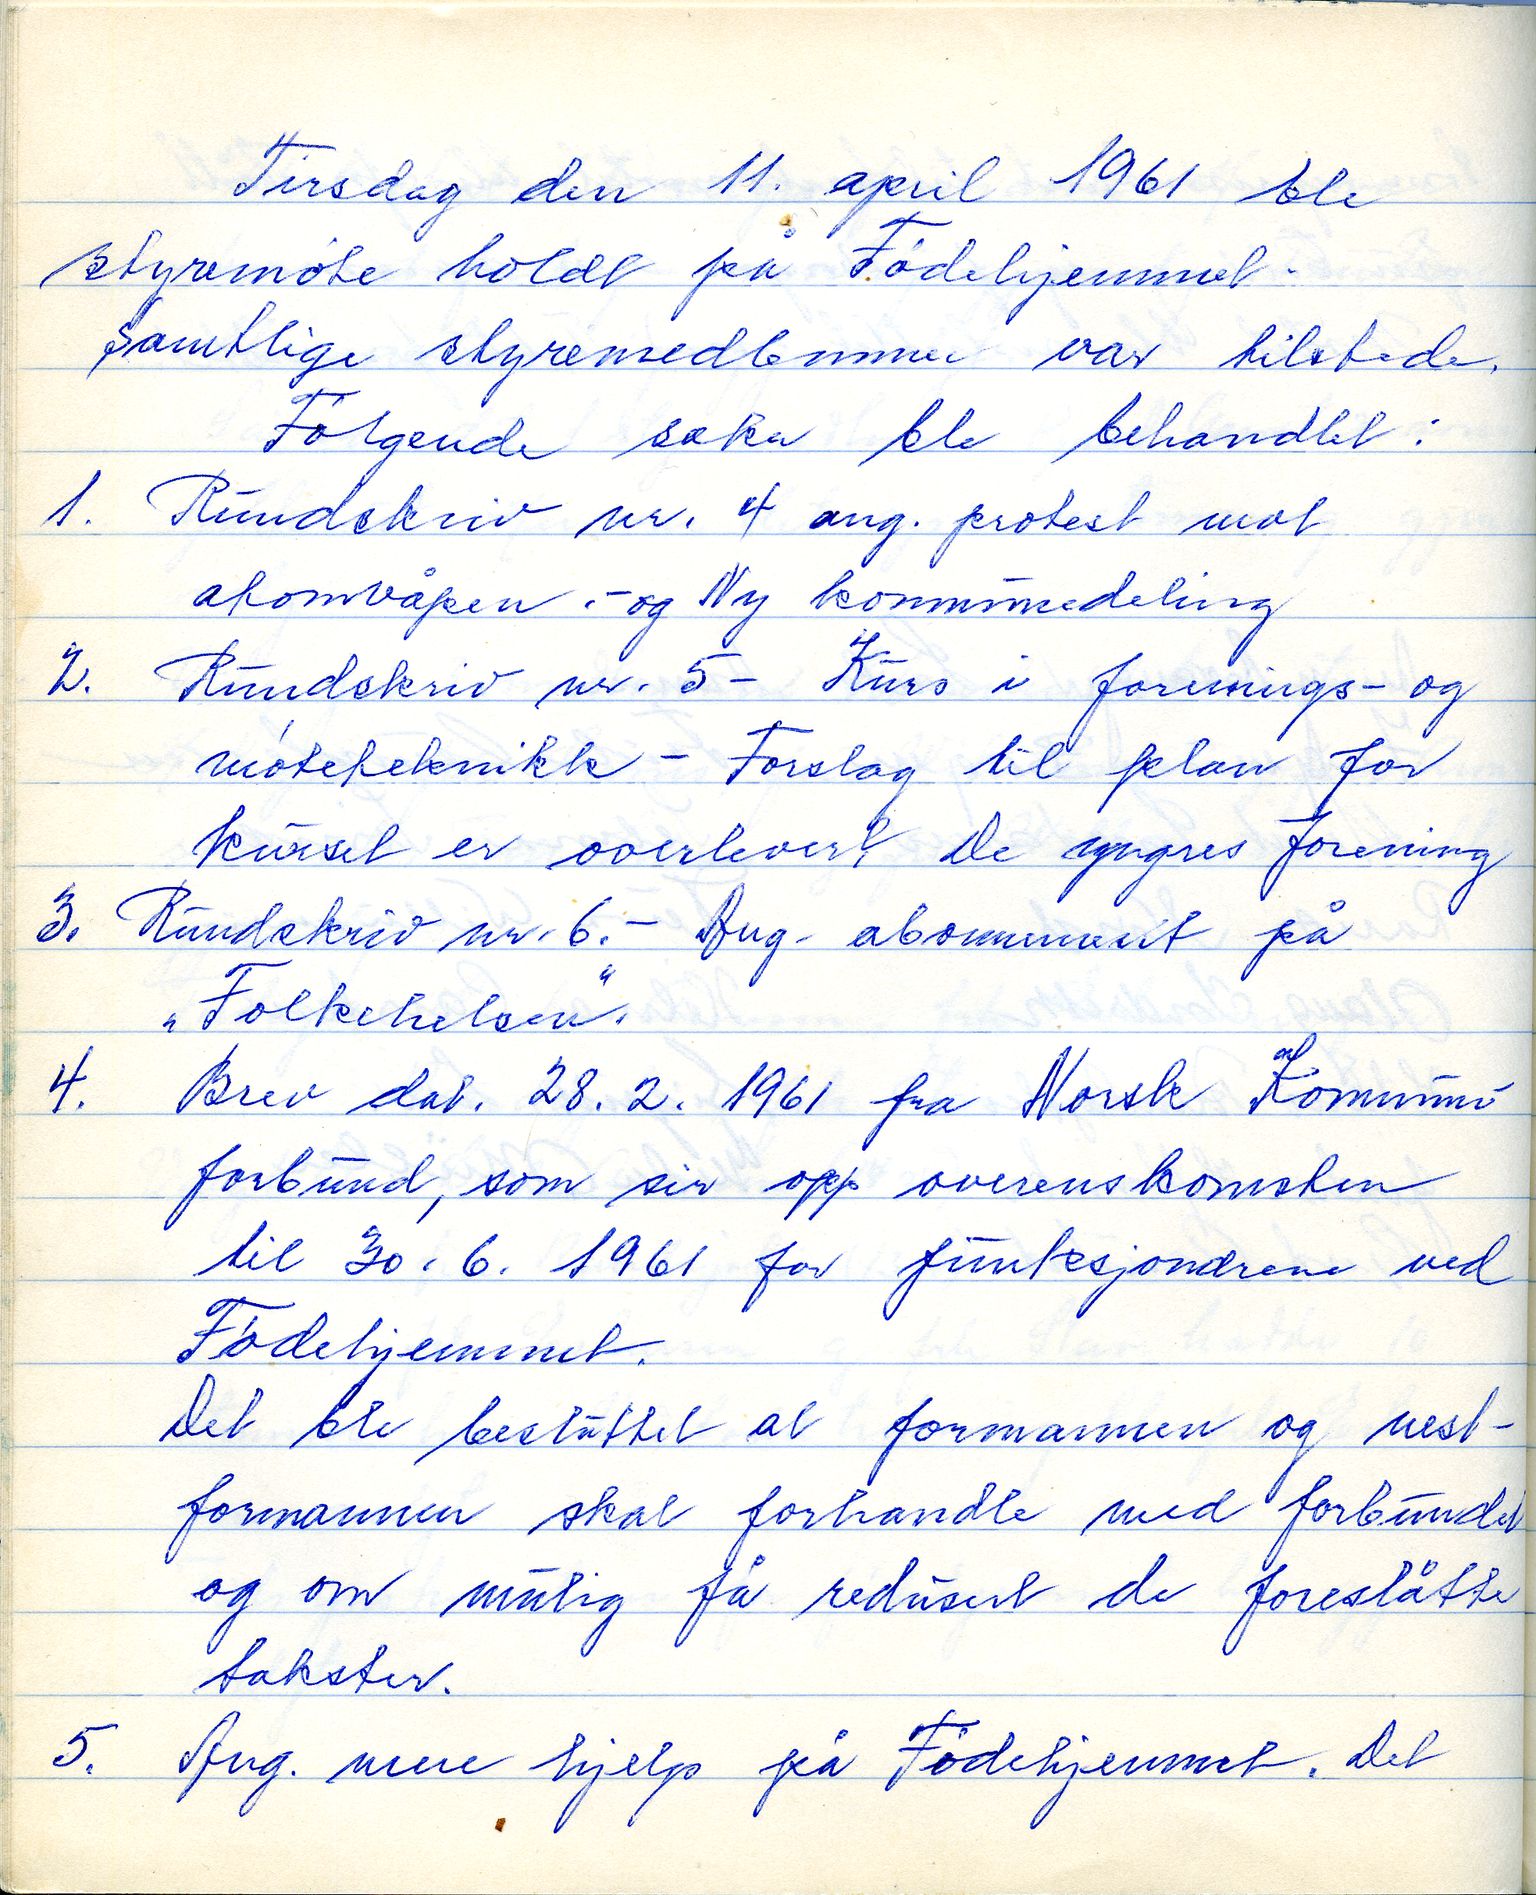 Tirsdag den 11. april 1961 ble
styremøte holdt på Fødehjemmet.
Samtlige styremedlemmer var tilstede.
Følgende saker ble behandlet:
1. Rundskriv nr. 4 ang. protest mot
atomvåpen.- og Ny kommunedeling
2. Rundskriv nr. 5 - Kurs i forenings- og
møteteknikk - Forslag til plan for
kurset er overlevert De yngres forening
3. Rundskriv nr. 6. - Ang. abonnement på
"Folkehelsen".
4. Brev dat. 28.2.1961 fra Norsk Kommune
forbund, som sier opp overenskomsten
til 30.6.1961 for funksjonærene ved
Fødehjemmet.
Det ble besluttet at formannen og nest-
formannen skal forhandle med forbundet
og om mulig få redusert de foreslåtte
takster.
5. Ang. mere hjelp på Fødehjemmet. Det